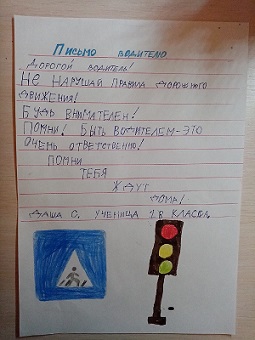 Письмо водителю
Дорогой водитель!
Не нарушай правила дорожного
движения!
Будь внимателен!
Помни! Быть водителем-это
очень ответственно!
Помни
тебя
ждут
дома!
Даша С. ученица 2в класса.